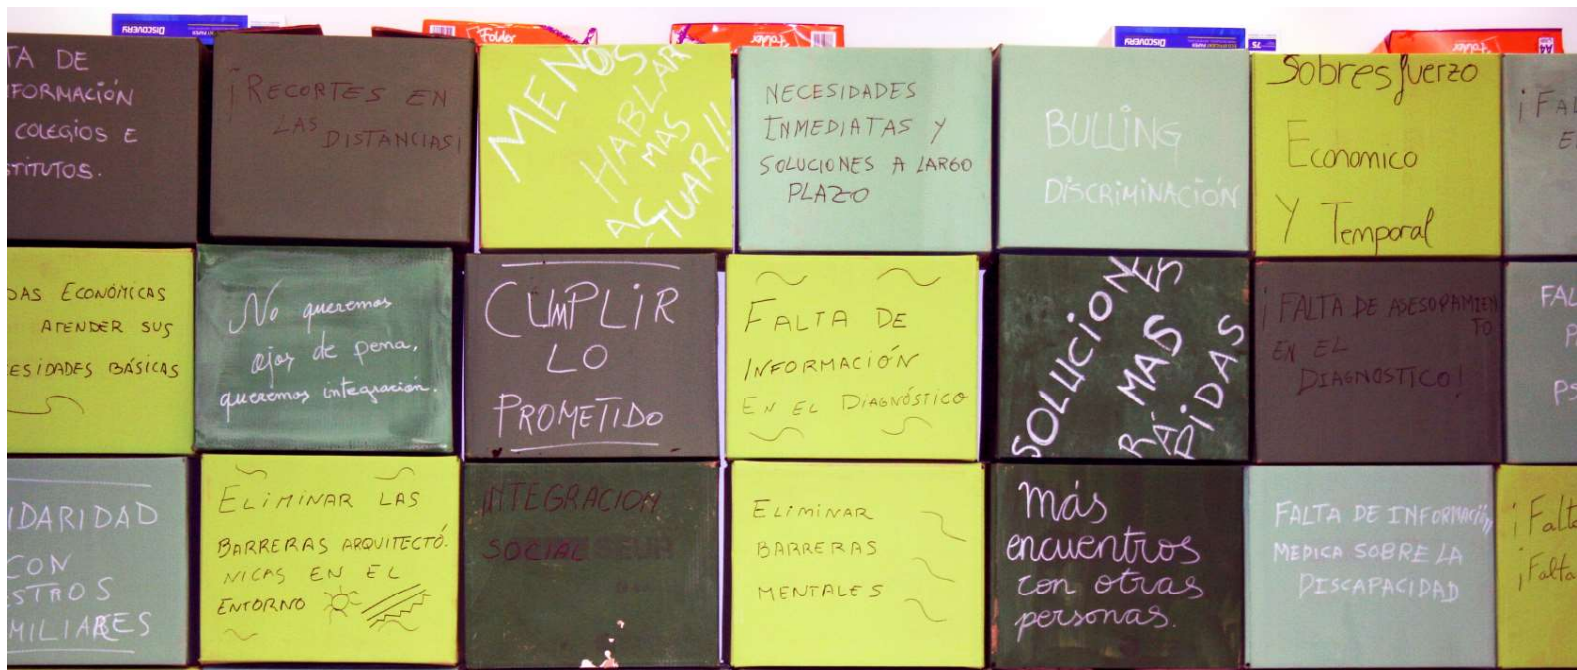 DISCOVERY
Folder
Folder
DISCOVERY
75
Folder
A4
TA DE
FORMACIÓN
COLEGIOS E
TITUTOS.
¡RECORTES EN
LAS
DISTANCIAS!
MENOS
HABLAR
MAS
ACTUAR!!
NECESIDADES
INMEDIATAS Y
SOLUCIONES A LARGO
PLAZO
BULLING
DISCRIMINACIÓN
Sobresfuerzo
Economico
Y Temporal
¡FAL
E
DAS ECONÓMICAS
ATENDER SUS
ESIDADES BÁSICAS
No queremos
ojos de pena,
queremos integración.
CUMPLIR
LO
PROMETIDO
FALTA DE
INFORMACIÓN
EN EL DIAGNÓSTICO
SOLUCIONES
MAS
RÁPIDAS
¡FALTA DE ASESORAMIEN
TO
EN EL
DIAGNOSTICO!
FAL
P
PS
IDARIDAD
CON
STROS
MILIARES
ELIMINAR LAS
BARRERAS ARQUITECTÓ-
NICAS EN EL
ENTORNO
INTEGRACION
SOCIAL
ELIMINAR
BARRERAS
MENTALES
más
encuentros
con otras
personas.
FALTA DE INFORMACIÓN
MEDICA SOBRE LA
DISCAPACIDAD
¡Falta
¡Falta